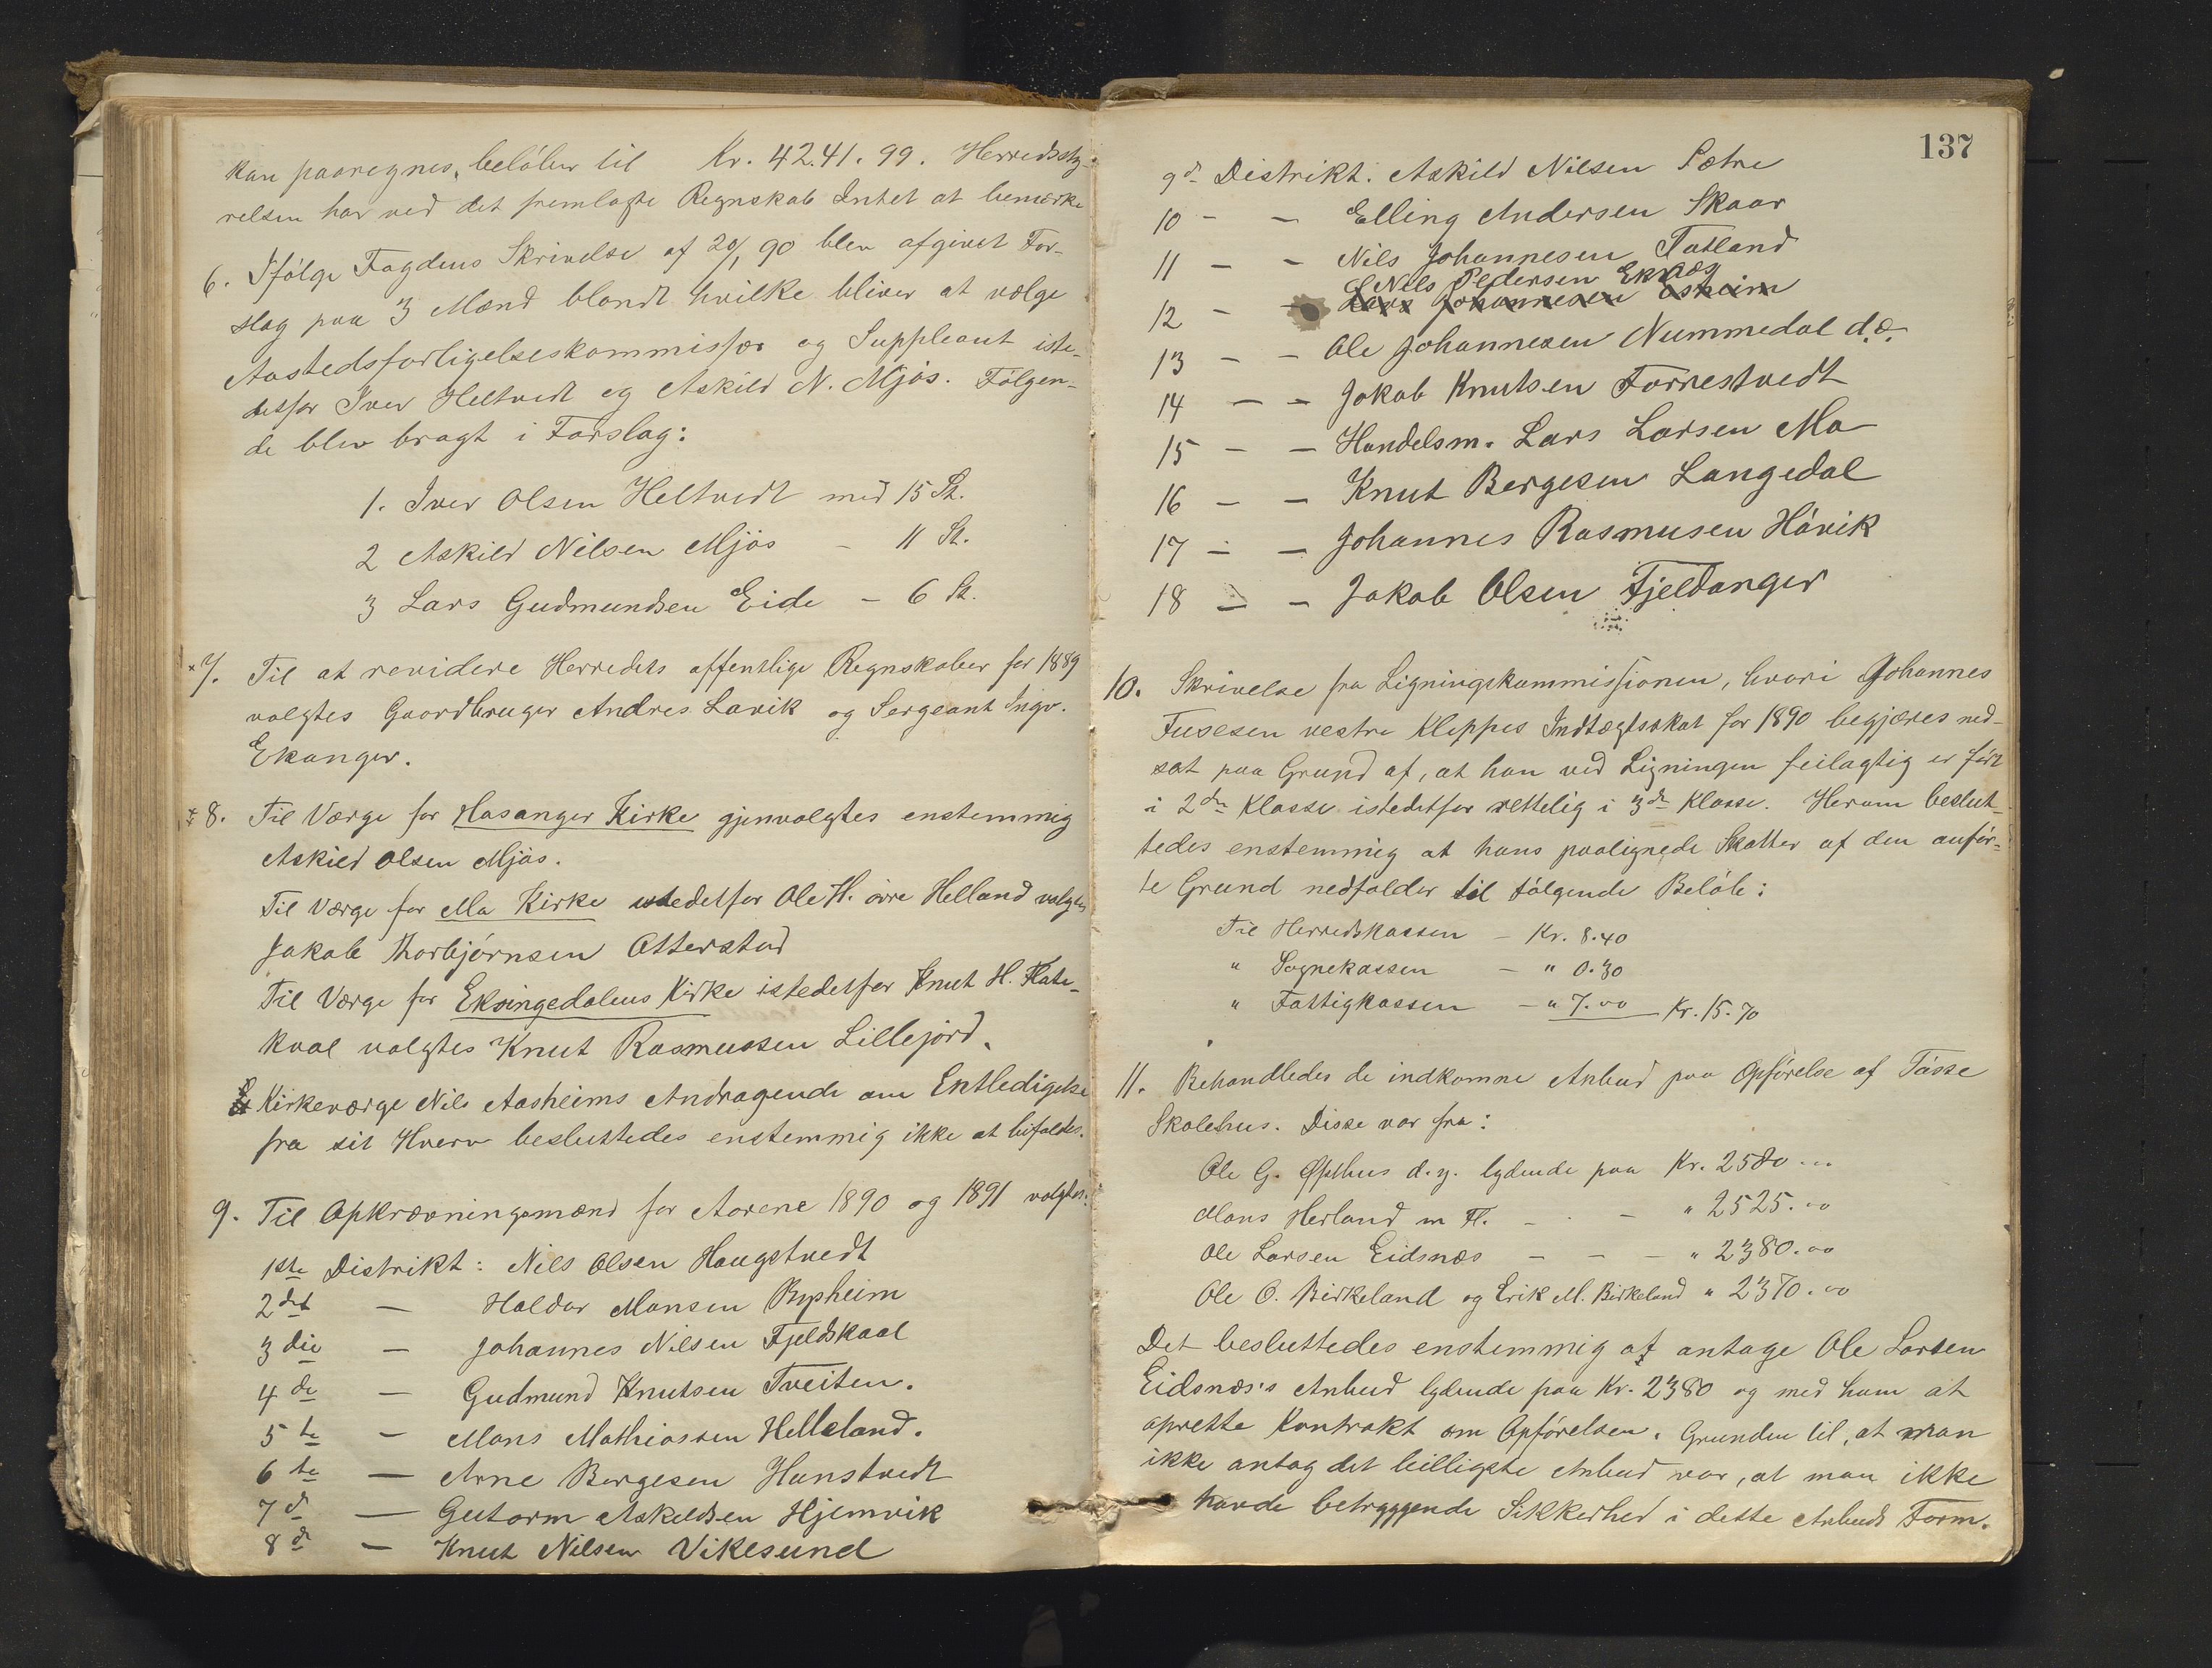 kan paaregnes, beløber til Kr. 4241.99. Herredssty-
relsen har ved det fremlagte Regnskab Intet at bemærke
6. Ifølge Fogdens Skrivelse af 20/1 90 blev afgivet For-
slag paa 3 Mænd blandt hvilke bliver at vælge
Aastedsforligelseskommissær og Suppleant iste-
detfor Iver Heltvedt og Askild N. Mjøs. Følgen-
de blev bragt i Forslag:
1. Iver Olsen Heltvedt med 15 St.
2 Askild Nilsen Mjøs – 11 St.
3 Lars Gudmundsen Eide – 6 St.
7. Til at revidere Herredets offentlige Regnskaber for 1889
valgtes Gaardbruger Andres Lavik og Sergeant Ingv.
Ekanger.
8. Til Værge for Hosanger Kirke gjenvalgtes enstemmig
Askild Olsen Mjøs.
Til Værge for Mo Kirke istedetfor Ole H. øvre Helland valgtes
Jakob Thorbjørnsen Otterstad
Til Værge for Eksingedalens Kirke istedetfor Knut H. Flate-
kval valgtes Knut Rasmussen Lillejord.
Kirkeværge Nils Aasheims Andragende om Entledigelse
fra sit Hverv besluttedes enstemmig ikke at bifaldes.
9. Til Opkrævningsmænd for Aarene 1890 og 1891 valgtes:
1ste Distrikt: Nils Olsen Haugstvedt
2det – Haldor Monsen Rypheim
3die – Johannes Nilsen Fjeldskaal
4de – Gudmund Knutsen Tveiten.
5te – Mons Mathiassen Helleland.
6te – Arne Børgesen Hanstvedt
7d – Gutorm Askeldsen Hjemvik
8d – Knut Nilsen Vikesund
137
9d Distrikt. Askild Nilsen Sætre
10 – – Elling Andersen Skaar
11 – – Nils Johannesen Tatland
Nils Pedersen Eknæs
12 – – Lars Johannesen Esheim
13 – – Ole Johannesen Nummedal d.æ.
14 – – Jakob Knutsen Forrestvedt
15 – – Handelsm. Lars Larsen Mo
16 – – Knut Bergesen Langedal
17 – – Johannes Rasmusen Høvik
18 – – Jakob Olsen Fjeldanger
10. Skrivelse fra Ligningskommissionen, hvori Johannes
Fusesen vestre Kleppes Indtægtsskat for 1890 begjæres ned-
sat paa Grund af, at han ved Ligningen feilagtig er ført
i 2den Klasse istedetfor rettelig i 3de Klasse. Herom beslut-
tedes enstemmig at hans paalignede Skatter af den anfør-
te Grund nedfalder til følgende Beløb:
Til Herredskassen – Kr. 8.40
" Sognekassen – " 0.30
" Fattigkassen – " 7.00 Kr. 15.70
11. Behandledes de indkomne Anbud paa Opførelse af Tøsse
Skolehus. Disse var fra:
Ole G. Øpsthus d.y. lydende paa Kr. 2580...
Mons Herland m Fl. – – " 2525.00
Ole Larsen Eidsnæs – – – " 2380.00
Ole O. Birkeland og Erik M. Birkeland " 2370.00
Det besluttedes enstemmig at antage Ole Larsen
Eidsnæs's Anbud lydende paa Kr. 2380 og med ham at
oprette Kontrakt om Opførelsen. Grunden til, at man
ikke antog det billigste Anbud var, at man ikke
havde betryggende Sikkerhed i dette Anbuds Form.